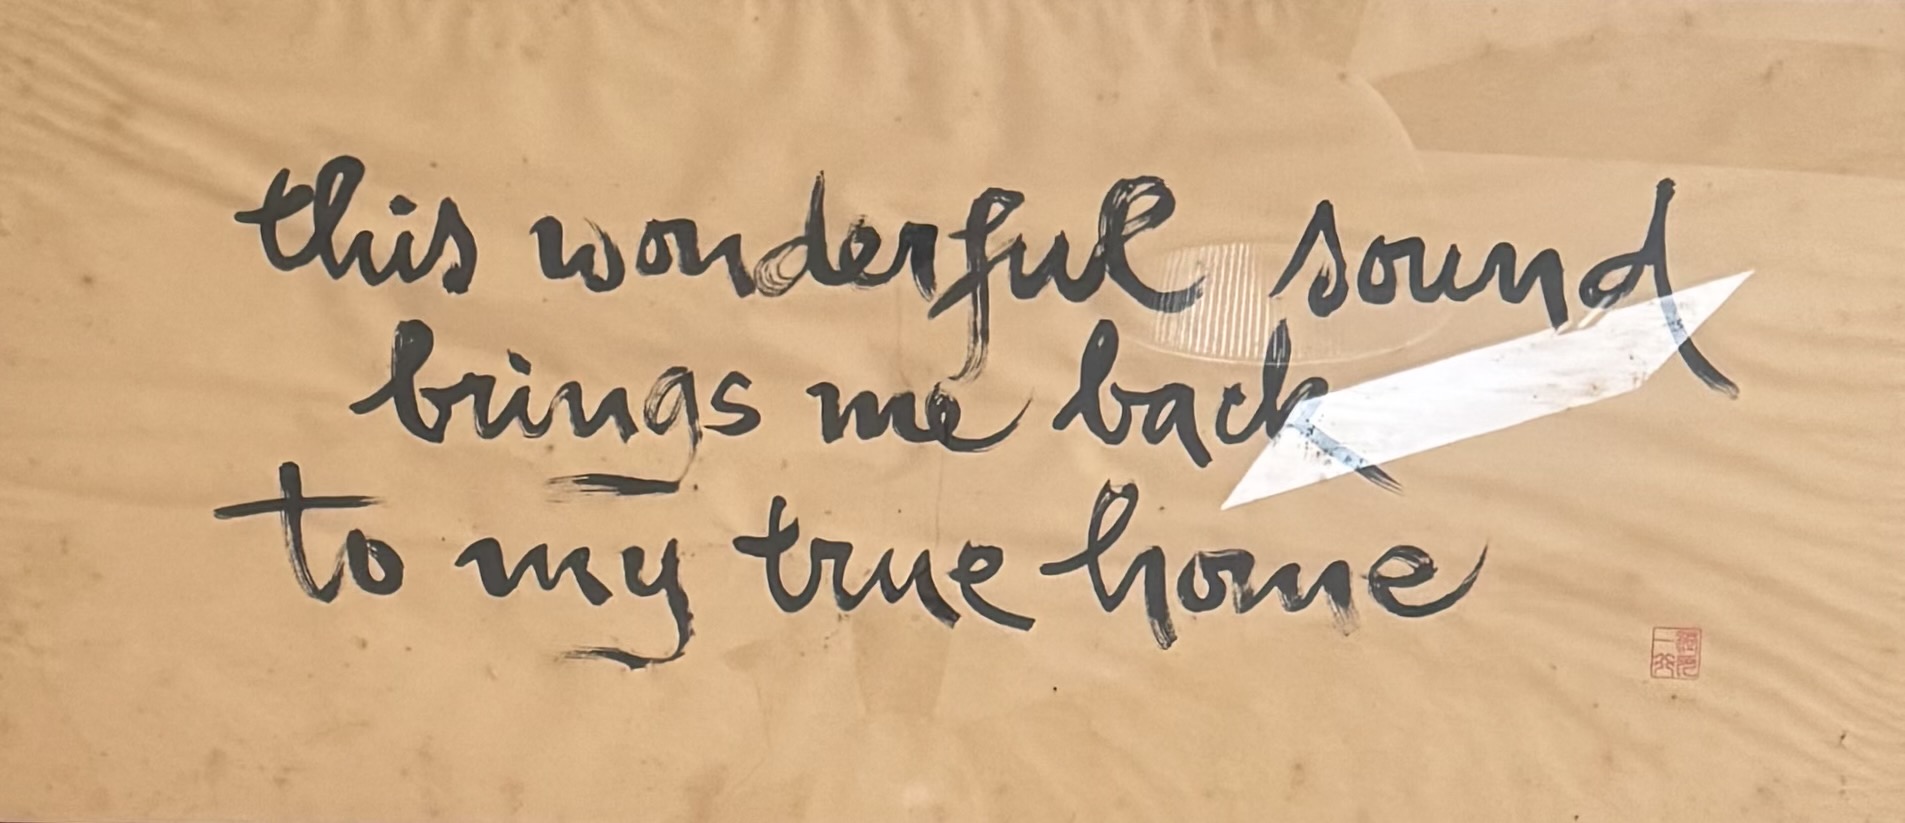 this wonderful sound
brings me back
to my true home